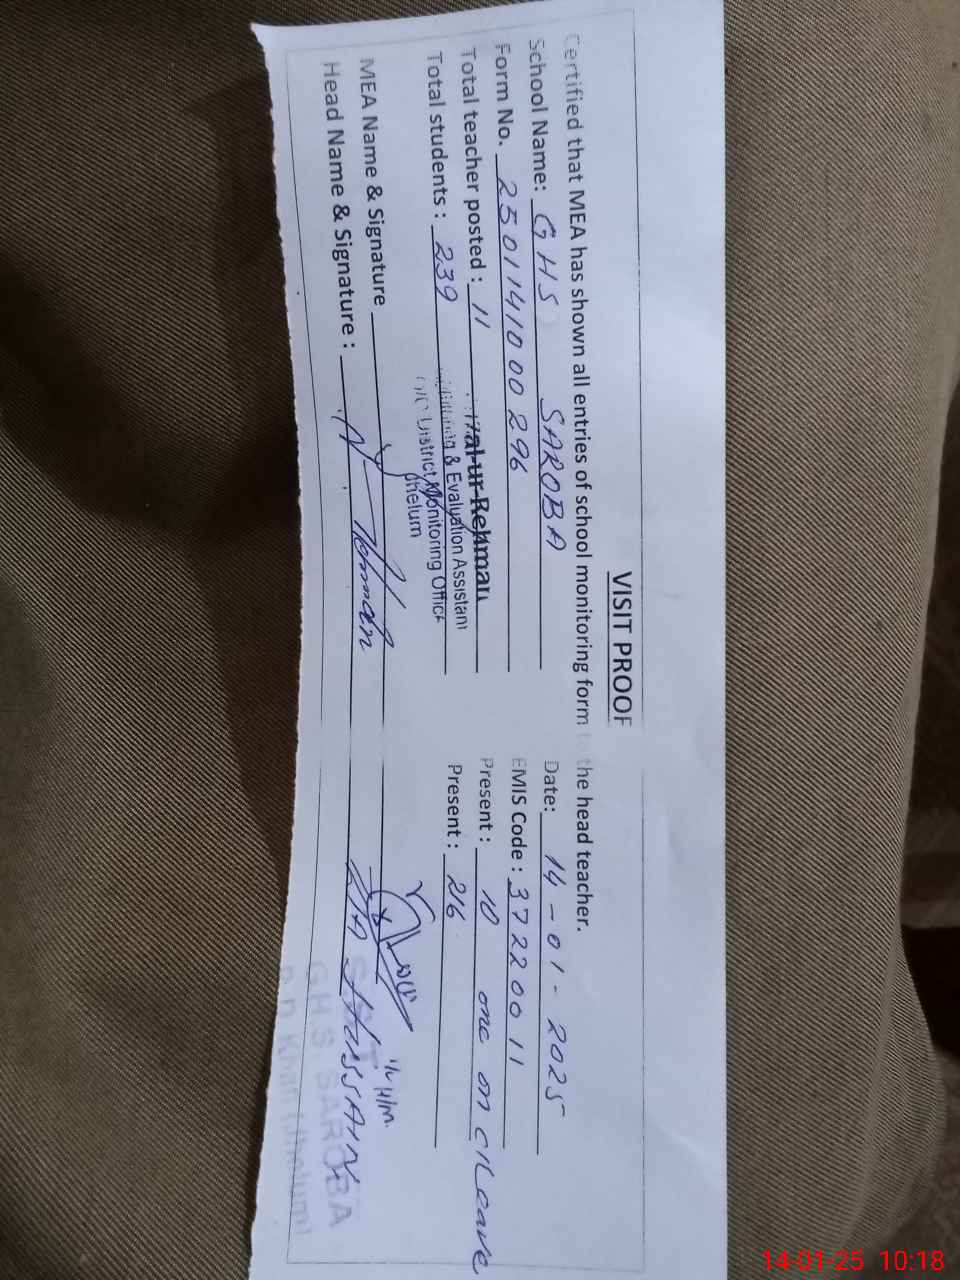 VISIT PROOF
Certified that MEA has shown all entries of school monitoring form to the head teacher.
School Name: GHS SAROBA Date: 14-01-2025
Form No. 25011410 00 296 EMIS Code : 37220011
Total teacher posted : 11 Present : 10 one on C/Leave
Total students : 239 Present : 216
ur-Rehman
& Evaluation Assistant
District Monitoring Office
Jhelum
MEA Name & Signature
Head Name & Signature : HUSSAIN
G.H.S. SAROBA
Khan (Jhelum)
14-01-25 10:18